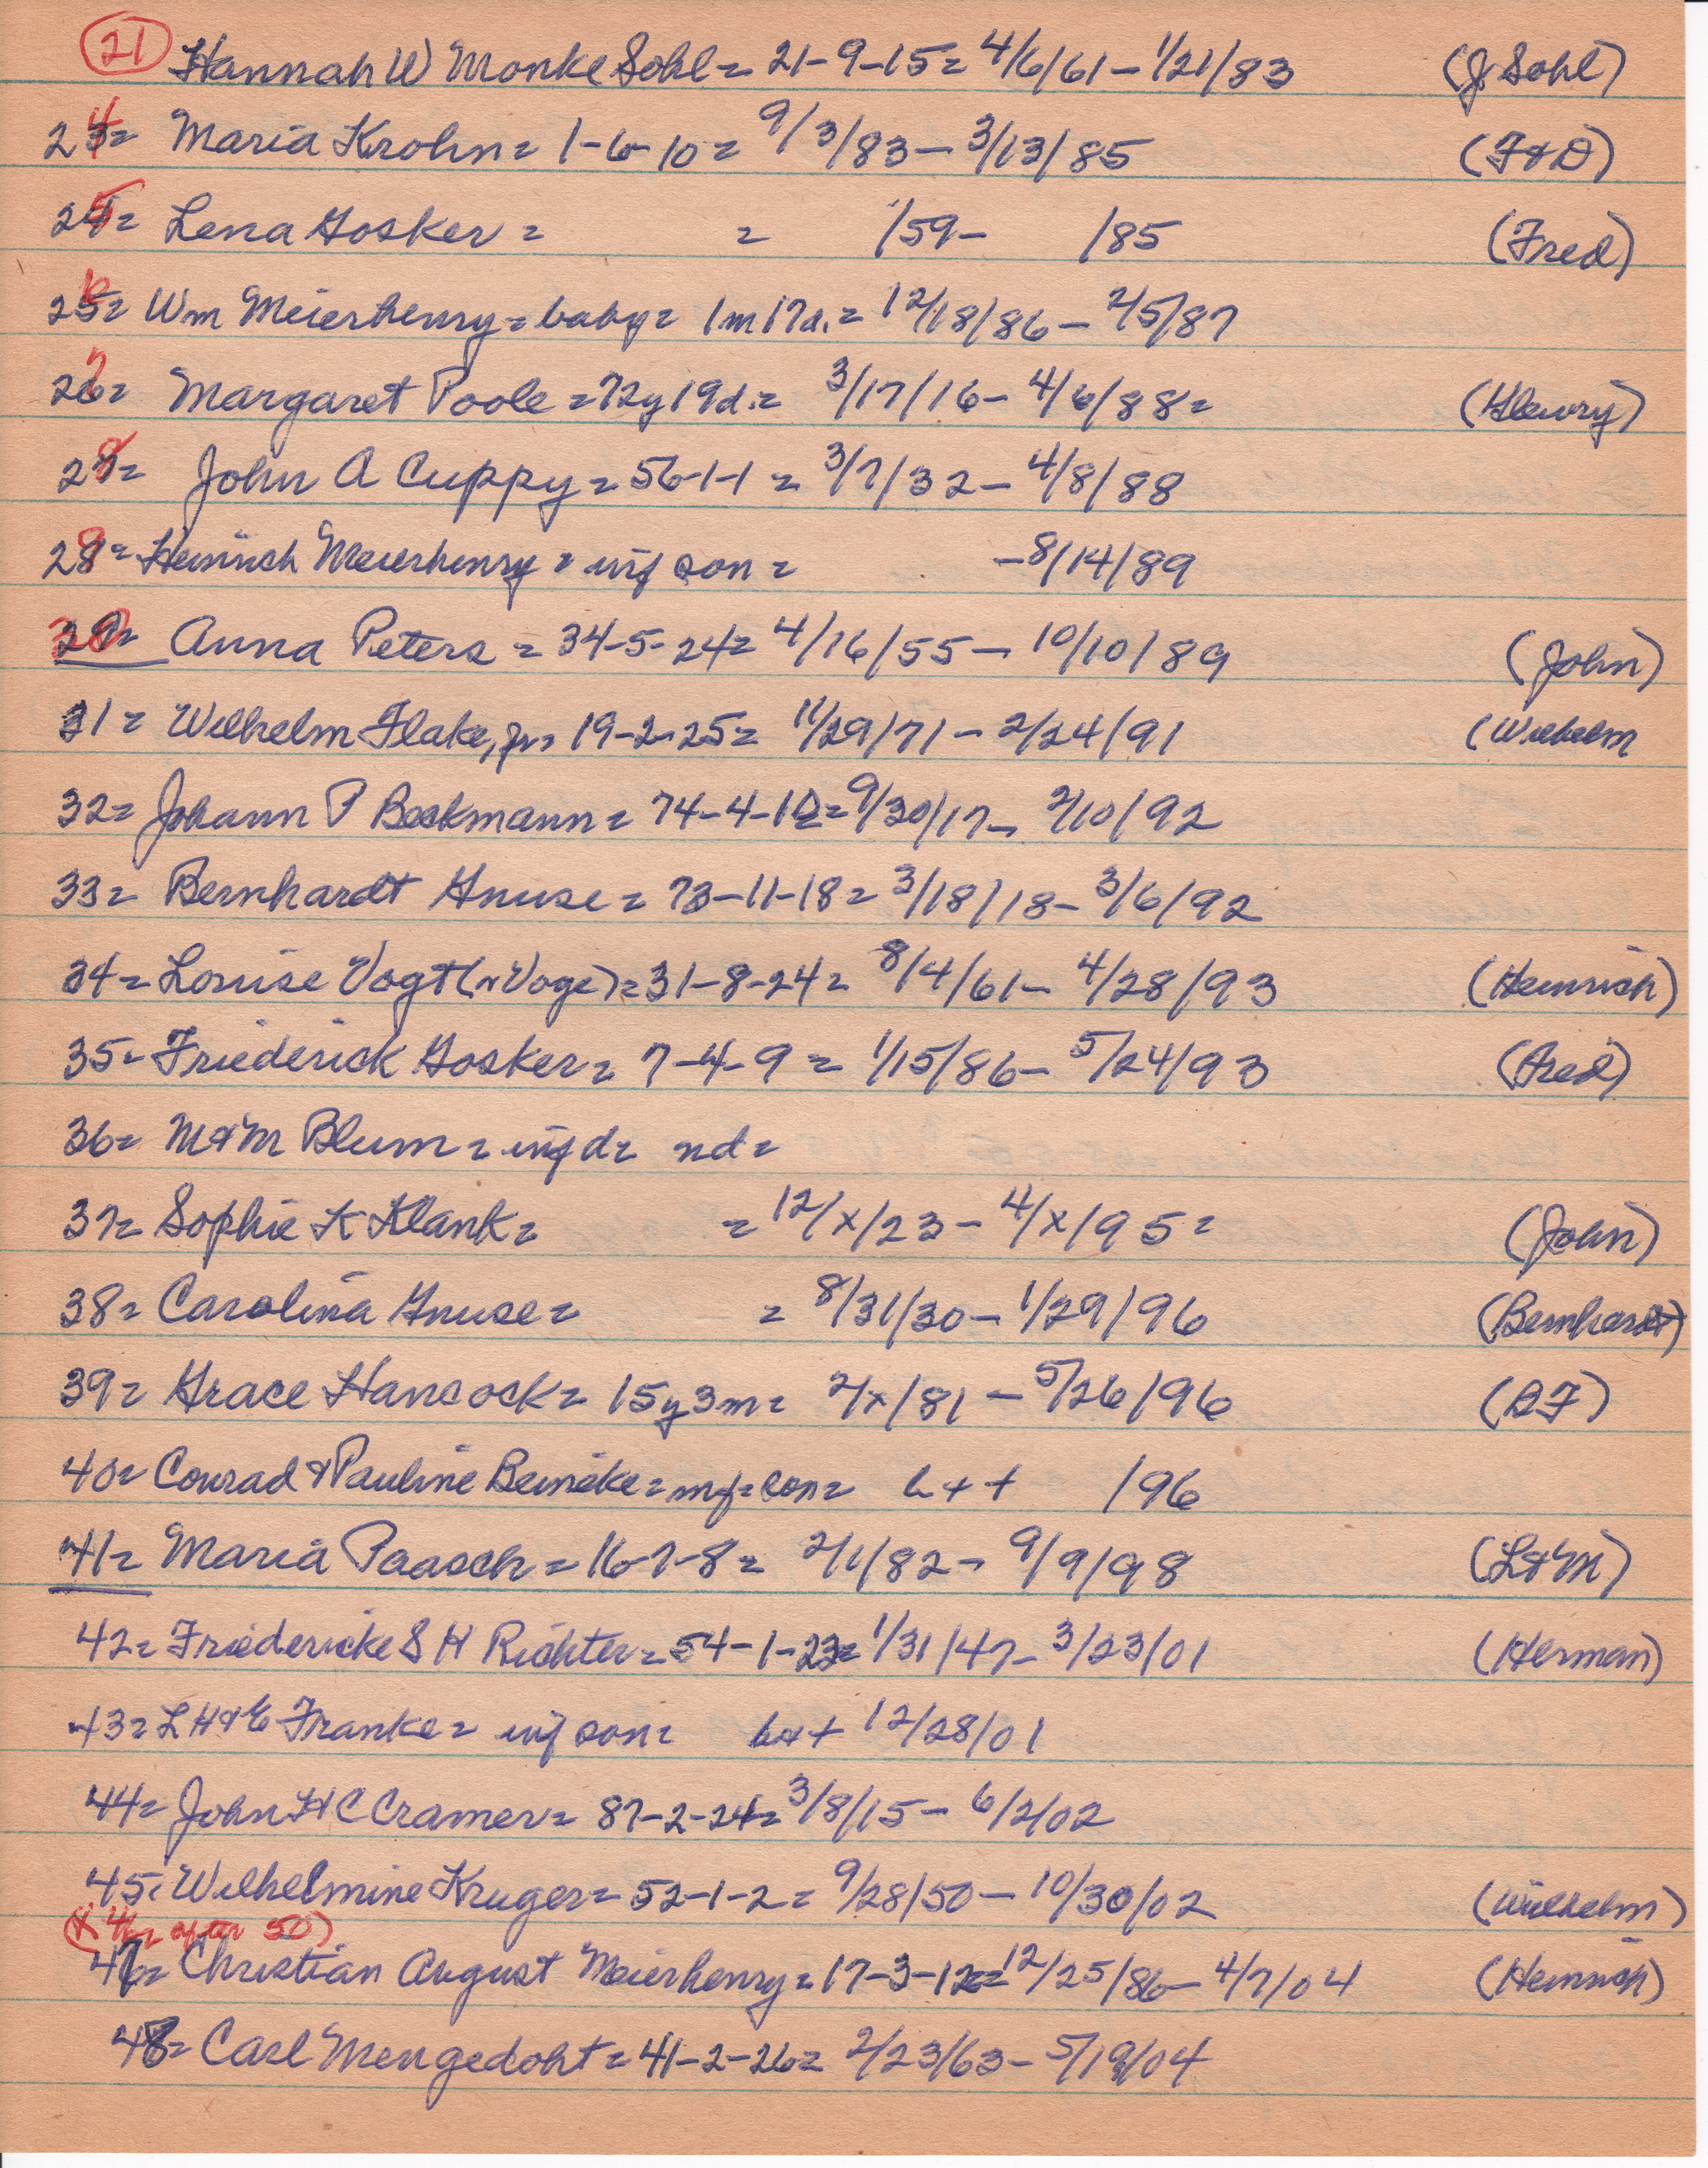 21 Hannah W Monke Sohl = 21-9-15 = 4/6/61 - 1/21/83 (J Sohl)
24 = Maria Krohn = 1-6-10 = 9/3/83 - 3/13/85 (F&D)
25 = Lena Gosker = = /59 - /85 (Fred)
26 = Wm Meierhenry = baby = 1m17d. = 12/18/86 - 2/5/87
27 = Margaret Poole = 72y19d. = 3/17/16 - 4/6/88 = (Henry)
28 = John A Cuppy = 56-1-1 = 3/7/32 - 4/8/88
29 = Heinrich Meierhenry = inf son = - 8/14/89
30 = Anna Peters = 34-5-24 = 4/16/55 - 10/10/89 (John)
31 = Wilhelm Flake, jr = 19-2-25 = 11/29/71 - 2/24/91 (Wilhelm
32 = Johann P Beckmann = 74-4-10 = 9/30/17 - 2/10/92
33 = Bernhardt Gnuse = 73-11-18 = 3/18/18 - 3/6/92
34 = Louise Vogt (n Voge) = 31-8-24 = 8/4/61 - 4/28/93 (Heinrich)
35 = Friederick Gosker = 7-4-9 = 1/15/86 - 5/24/93 (Fred)
36 = M&M Blum = inf d = nd =
37 = Sophie K Klank = = 12/x/23 - 4/x/95 = (John)
38 = Carolina Gnuse = = 8/31/30 - 1/29/96 (Bernhardt)
39 = Grace Hancock = 15y3m = 2/x/81 - 5/26/96 (DF)
40 = Conrad & Pauline Beineke = inf = son = b + + /96
41 = Maria Paasch = 16-7-8 = 2/1/82 - 9/9/98 (L&M)
42 = Friedericke S H Richter = 54-1-23 = 1/31/47 - 3/23/01 (Herman)
43 = L H & E Franke = inf son = b + + 12/28/01
44 = John H C Cramer = 87-2-24 = 3/8/15 - 6/2/02
45 = Wilhelmine Kruger = 52-1-2 = 9/28/50 - 10/30/02 (Wilhelm)
after 50)
47 = Christian August Meierhenry = 17-3-12 = 12/25/86 - 4/7/04 (Heinrich)
48 = Carl Mengedoht = 41-2-26 = 2/23/63 - 5/19/04